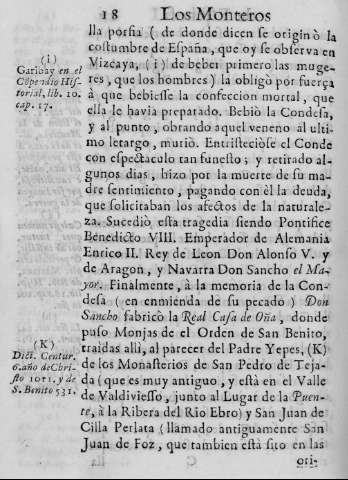 18 Los Monteros
lla porfia ( de donde dicen se originò la
costumbre de España, que oy se observa en
Vizcaya, (i) de beber primero las muge-
res, que los hombres) la obligò por fuerça
à que bebiesse la confeccion mortal, que
ella le havia preparado. Bebiò la Condesa,
y al punto, obrando aquel veneno al ulti-
mo letargo, muriò. Entristeciòse el Conde
con espectaculo tan funesto; y retirado al-
gunos dias, hizo por la muerte de su ma-
dre sentimiento, pagando con èl la deuda,
que solicitaban los afectos de la naturale-
za. Sucediò esta tragedia siendo Pontifice
Benedicto VIII. Emperador de Alemania
Enrico II. Rey de Leon Don Alonso V. y
de Aragon, y Navarra Don Sancho el Ma-
yor. Finalmente, à la memoria de la Con-
desa ( en enmienda de su pecado ) Don
Sancho fabricò la Real Casa de Oña, donde
puso Monjas de el Orden de San Benito,
traidas alli, al parecer del Padre Yepes, (K)
de los Monasterios de San Pedro de Teja-
da (que es muy antiguo, y està en el Valle
de Valdiviesso, junto al Lugar de la Puen-
te, à la Ribera del Rio Ebro) y San Juan de
Cilla Perlata (llamado antiguamente San
Juan de Foz, que tambien està sito en las
ori-
(i)
Garibay en el
Cõpendio His-
torial, lib. 10.
cap. 17.
(K)
Dict. Centur.
6. año de Chri-
sto 1011. y de
S. Benito 531.